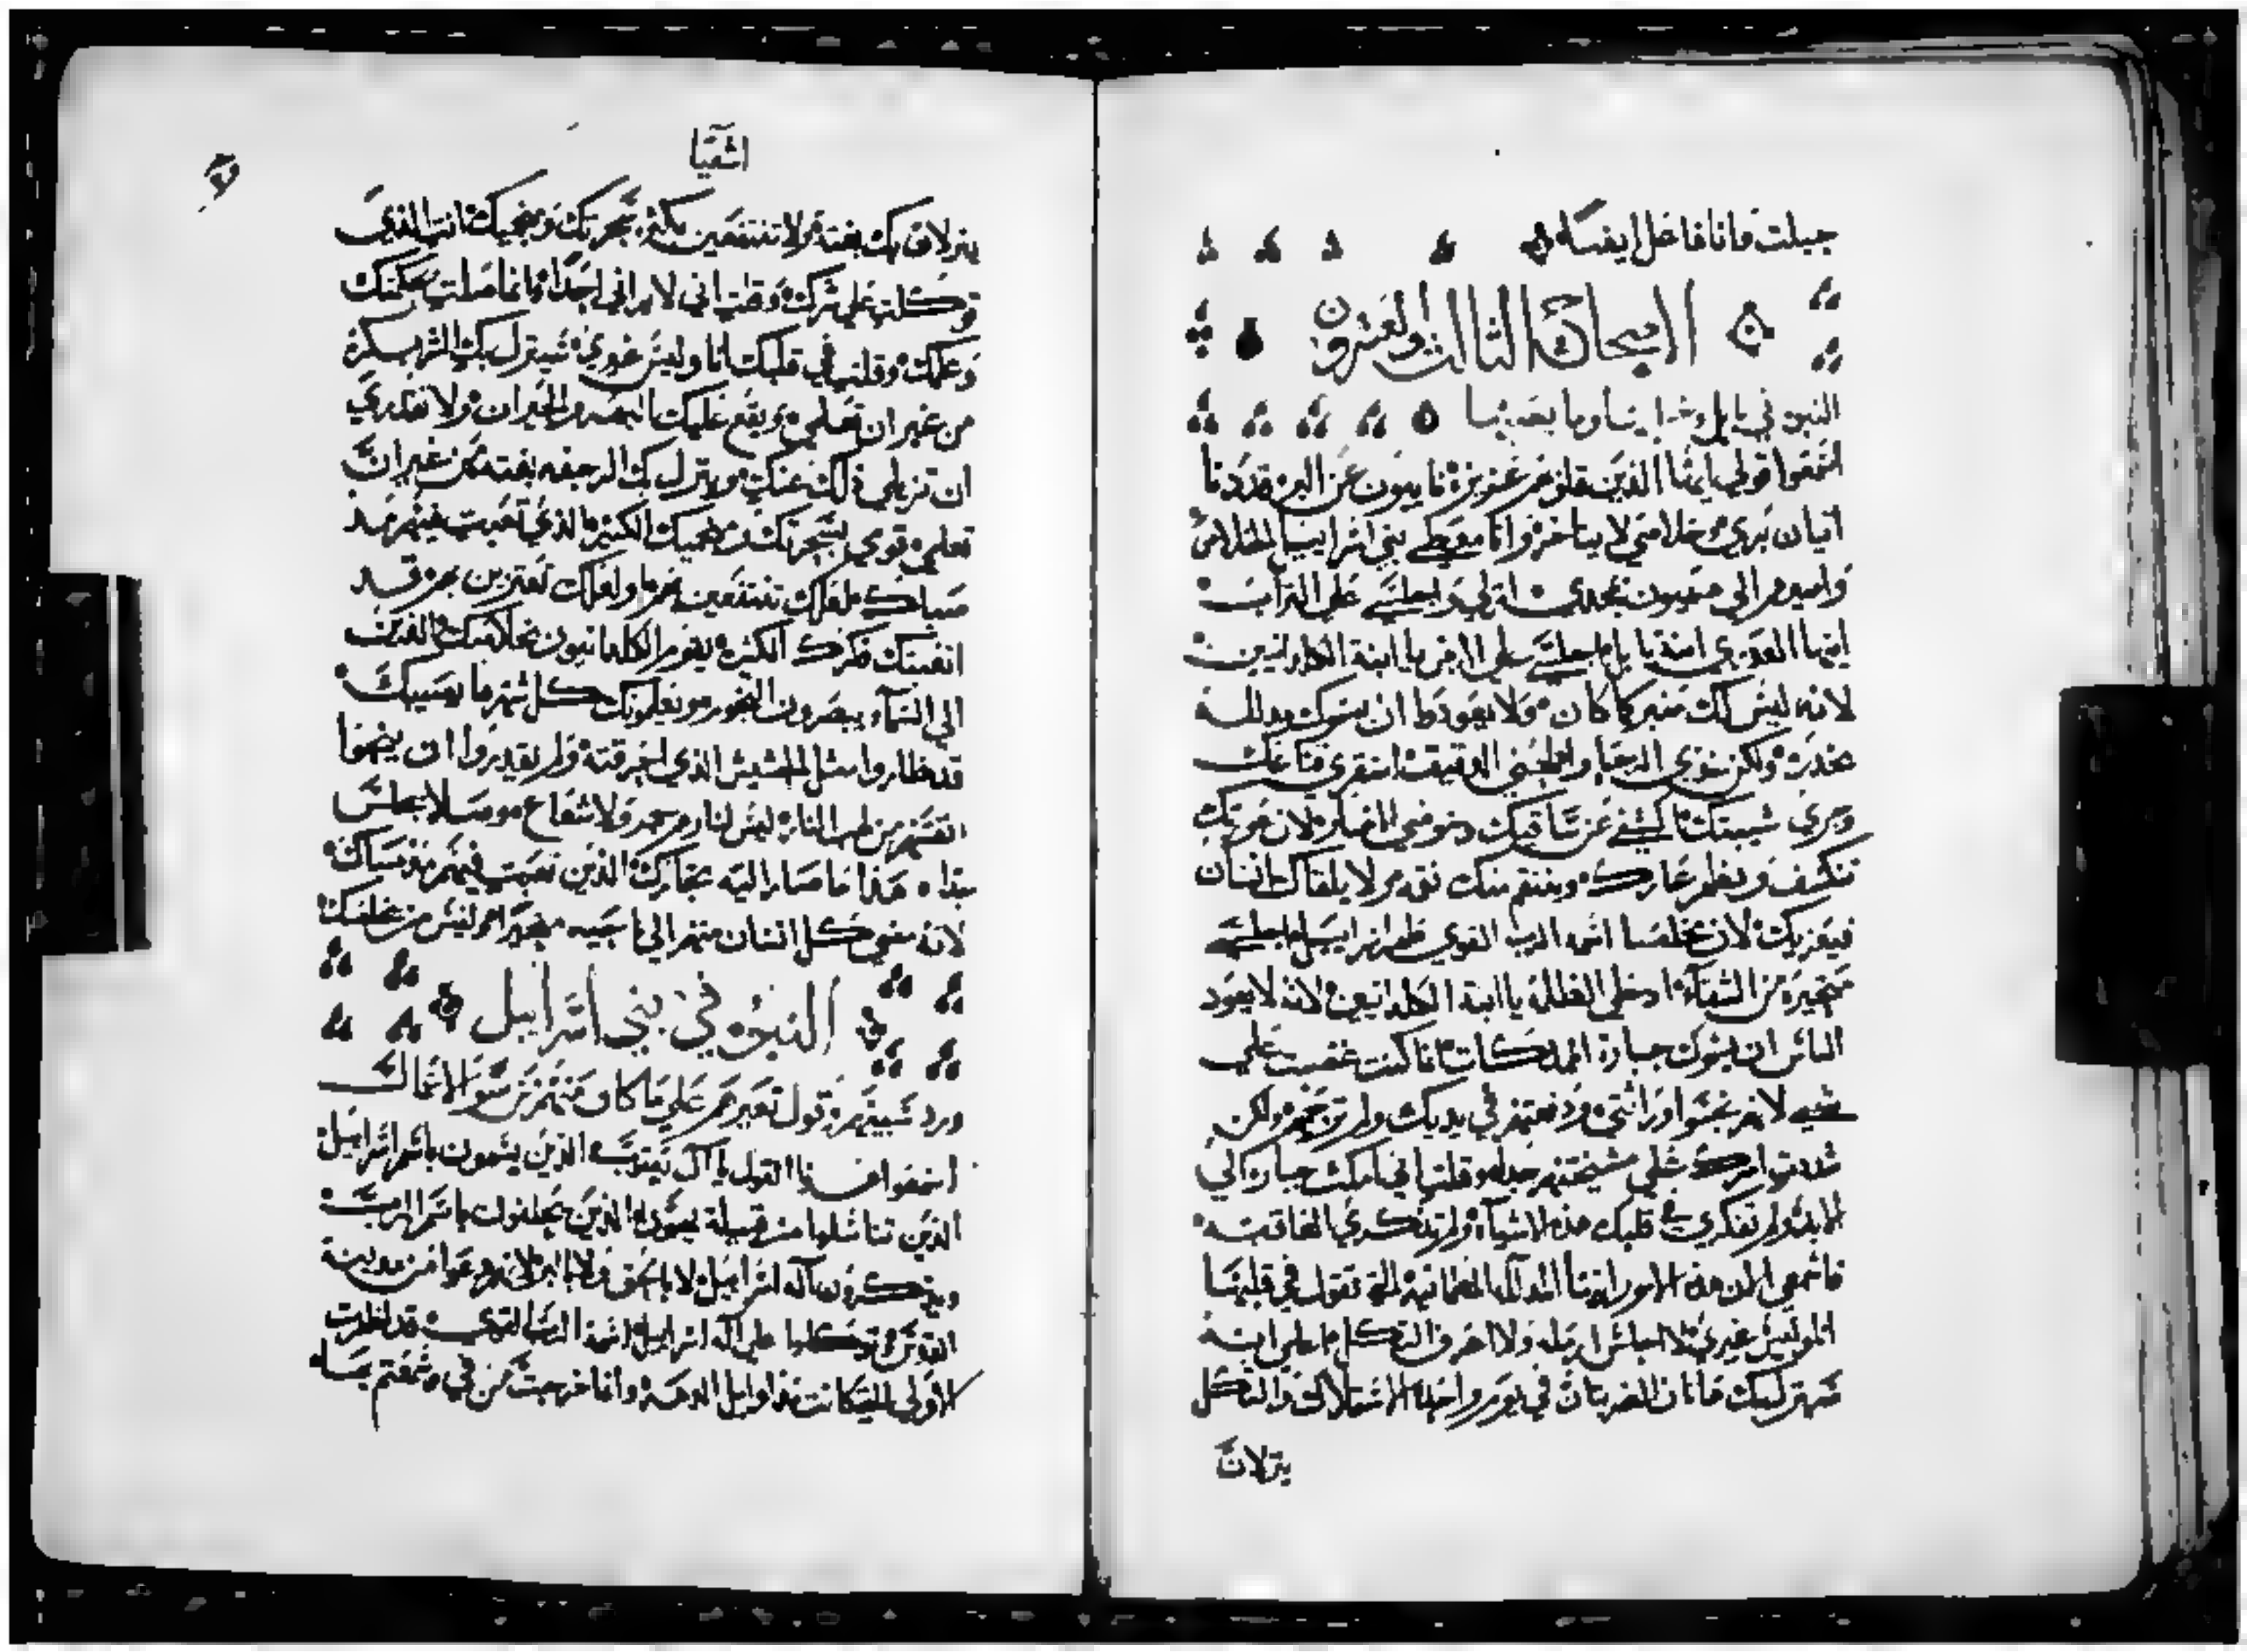 جبلت وانا فاعل ايضا
الاصحاح الثالث والعشرون
النبوه في بابل وخرابها وما يصيبها
اسمعوا قولي ايها الذين قلوبهم عزيزه تايهون عن البر قد دنا
اتيان بري وخلاصي لا يتاخر وانا معطي بني اسراييل الخلاص
الى صهيون مجدي انزلي واجلسي على التراب
ايتها العذري ابنة بابل اجلسي على الارض يا ابنة الكلدانيين
لانه ليس لك منبر كما كان ولا يعودوا ان يسموك مدلله
مخدره ولكن خذي الرحا واطحني الدقيق اسقري قناعك
وجزي شيبتك اكشفي عن ساقيك وخوضي الانهار لان عورتك
تنكشف ويظهر عارك وينتقم منك نقمه ولا يلقاك انسان
فيعزيك لان مخلصنا اسمه الرب القوي طهر اسراييل اجلسي
متحيره من الشقاء ادخلي الظلمه يا ابنة الكلدانيين لانه لا يعود
الناس ان يسموك جبارة المملكات انا كنت غضبت على
شعبي لانهم نجسوا وراثتي ودفعتهم في يديك ولم ترحميهم ولكن
شددتي نيرك على مشيختهم جدا وقلتي اني املكت جباره الى
الابد ولم تفكري في قلبك هذه الاشياء ولم تذكري العاقبه
فاسمعي الان هذه الامور ايتها المدلله المطمانيه التي تقول في قلبها
انا وليس غيري لا اجلس ارمله ولا اعرف التكل اعلمي انه
ستنزل بك هاتان الضربتان في يوم واحد الارملة والتكل
ينزلان
اشعيا
ينزلان بك بغتة ولا تنتفعين بكثرة سحرتك ومنجميك انتي الذي
توكلتي على شرك وقلتي اني لا يراني احدا وانما ضلتي بحكمتك
وعلمك وقلتي في قلبك انا وليس غيري سينزل بك الشر بسكره
من غير ان تعلمي ويقع عليك البهته والحيران ولا تقدري
ان تزيلي ذلك عنك وينزل بك الرجفه بغته من غير ان
تعلمي قوي بسحرتك ومنجميك الكثيره الذي تعبت فيهم منذ
صباك لعلك تنتفعين بهم او لعلك تعتزين بهم قد
اتعبتك فكرتك الكثيره يقوم الكلدانيون بخلاصك الذين
الى السماء ويبصرون النجوم ويعلمونك كل شهر ما يصيبك
قد صاروا مثل الحشيش الذي احرقته ولم يقدروا ان ينجوا
انفسهم من لهب النار ليس لنارهم جمر ولا شعاع موضعا لا يجلس
بيداه هكذا صاروا اليه تجارك الذين تعبت فيهم منذ صباك
لانه مضي كل انسان منهم الى ناحيته متحيرا وليس من يخلصك
النبوه في بني اسراييل
ورد سبيهم وقول تعييرهم على ما كان منهم من سو الاعمال
اسمعوا هذا القول يا ال يعقوب الذين يتسمون باسم اسراييل
الذين تناسلوا من قبيلة يهودا الذين يحلفون باسم الرب
ويذكرون اله اسراييل لا بالحق ولا بالبر لانهم دعوا من مدينة
القدس وتوكلوا على اله اسراييل اسمه الرب القوي قد اظهرت
الاولى التي كانت منذ اوايل الدهر وانها خرجت من في وسمعتم بها